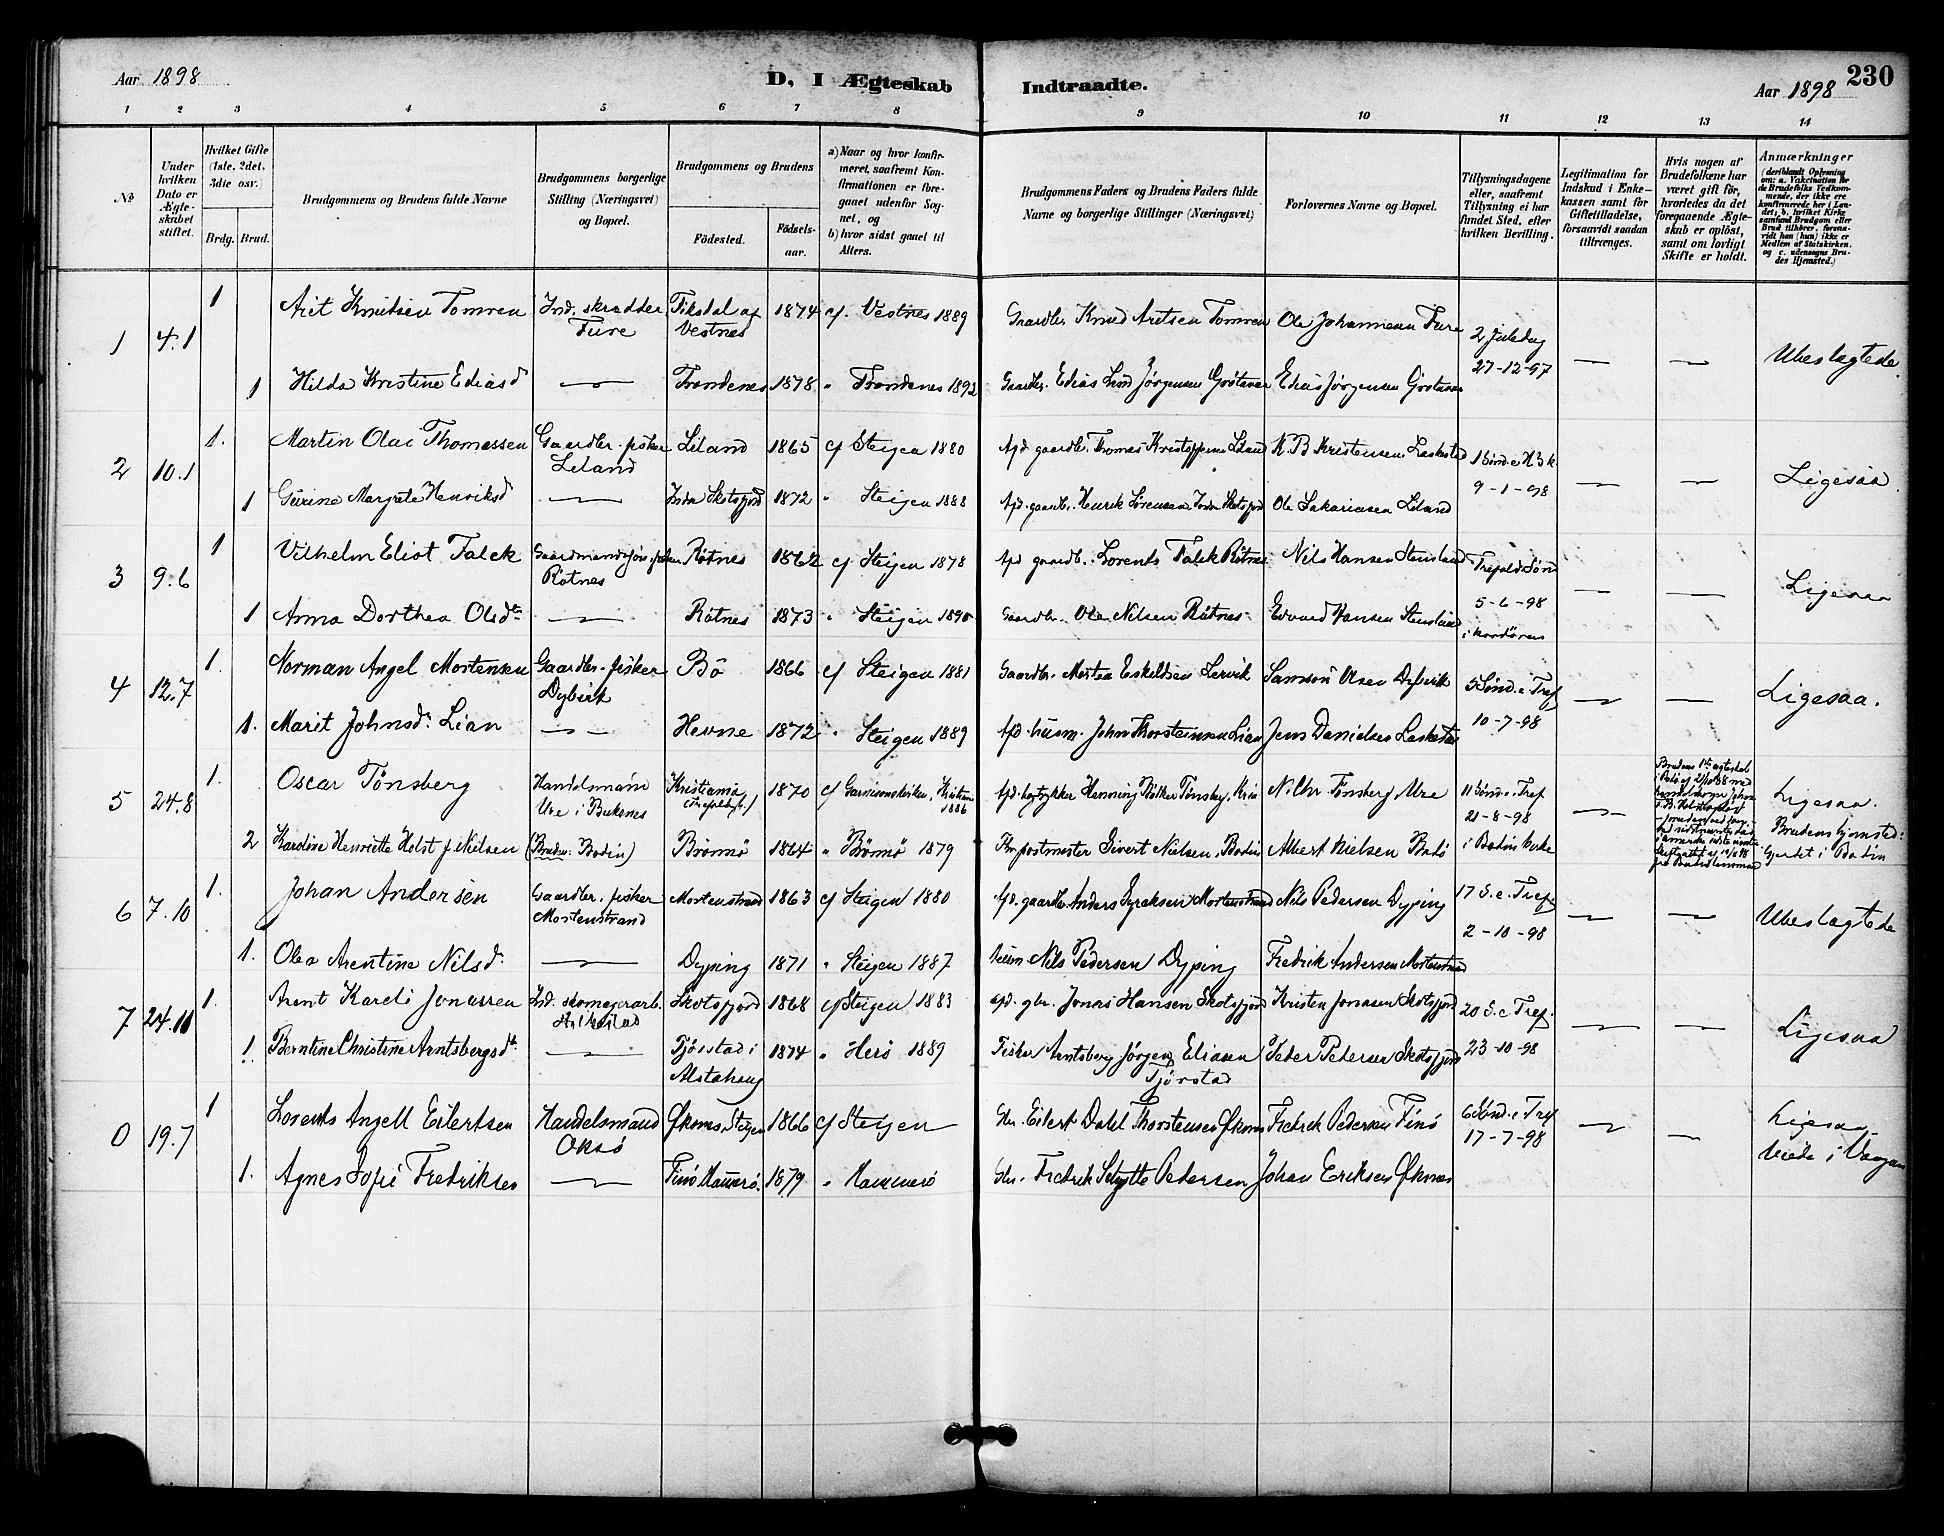 Aar 1898 D, I Ægteskab Indtraadte. Aar 1898 230
1 2 3 4 5 6 7 8 9 10 11 12 13 14
№
Under hvilken Dato er Ægteskabet stiftet.
Hvilket Gifte (1ste. 2det. 3die osv.)
Brdg. Brud.
Brudgommens og Brudens fulde Navne
Brudgommens borgerlige Stilling (Næringsvei) og Bopæl.
Brudgommens og Brudens
Fødested. Fødselsaar.
a) Naar og hvor konfirmeret, saafremt Konfirmationen er foregaaet udenfor Sognet, og
b) hvor sidst gaaet til Alters.
Brudgommens Faders og Brudens Faders fulde Navne og borgerlige Stillinger (Næringsvei)
Forlovernes Navne og Bopæl.
Tillysningsdagene eller, saafremt Tillysning ei har fundet Sted, efter hvilken Bevilling.
Legitimation for Indskud i Enkekassen samt for Giftetilladelse, forsaavidt saadan tiltrænges.
Hvis nogen af Brudefolkene har været gift før, hvorledes da det foregaaende Ægteskab er opløst, samt om lovligt Skifte er holdt.
Anmærkninger (deriblandt Oplysning om: a. Vakcination for de Brudefolks Vedkommende, der ikke ere konfirmerede her i Landet; b. hvilket Kirkesamfund Brudgom eller Brud tilhører, forsaavidt han (hun) ikke er Medlem af Statskirken. og c. udensogns Brudes Hjemsted.)
1 4.1 1 Arit Knutsen Tomren Ind. skrædder Fure Fiksdal af Vestnes 1874 cf. Vestnes 1889 Gaardbr. Knud Aritsen Tomren Ole Johannesen Fure 2 Juledag 27-12-97 — — Ubeslægtede.
1 Hilda Kristine Ediasd — Trondenes 1878 " Trondenes 1892 Gaardbr. Edias Lind Jørgensen Grøtavær Edias Jørgensen Grøtavær
2 10.1 1. Martin Olai Thomassen Gaardbr. fisker Leland Leland 1865 cf Steigen 1880 Afd. gaardbr. Thomas Kristoffersen Leland K. B Kristensen Laskestad 1 Sønd. e. H 3 k. 9-1-98 — — Ligesaa.
1 Gurine Margrete Henriksd — Indre Skotsfjord 1872 " Steigen 1888 Afd. gaardbr. Henrik Sørensen Indre Skotsfjord Ole Sakariasen Leland
3 9.6 1 Vilhelm Eliot Falck Gaardmandssøn, fisker Røtnes Røtnes 1862 cf Steigen 1878 Afd gaardb. Lorents Falck Røtnes Nils Hansen Stensland Trefoldh. Sønd 5-6-98 — — Ligesaa
1 Anna Dorthea Olsdtr — Røtnes 1873 " Steigen 1890 Gaardbr. Ole Nilsen Røtnes Edvard Hansen Stensland
4 12.7 1. Norman Angel Mortensen Gaardbr. fisker Dybvik Bø 1866 cf Steigen 1881 Gaardbr. Morten Eskildsen Lervik Samson Olsen Dybvik 5 Sønd. e Tref 10-7-98 — — Ligesaa.
1. Marit Johnsdr Lian — Hevne 1872 " Steigen 1889 Afd. husm. John Thorsteinsen Lian Jens Danielsen Laskestad
5 24.8 1. Oscar Tønsberg Handelsmand Ure i Buksnes Kristiania 1870 cf Garnisonskirken, Kristiania 1886 Afd. bogtrykker Henning Tønsberg, Kria N. Chr Tønsberg, Ure 11 Sønd. e. Tref 21-8-98 i Bodin kirke — Ligesaa.
2 Karoline Henriette Holst f. Nielsen (Bruden: Bodin) Brønnø 1864 " Brønnø 1879 Fhv postmester Sivert Nielsen, Bodin Albert Nielsen Bodø Brudens hjemsted: Gjerdet i Bodin
6 7.10 1. Johan Andersen Gaardbr. fisker Mortenstrand Mortenstrand 1863 cf Steigen 1880 Afd. gaardbr. Anders Dyreksen Mortenstrand Nils Pedersen Dyping 17 S. e. Tref. 2-10-98 — — Ubeslægtede
1. Olea Arentine Nilsdr — Dyping 1871 " Steigen 1887 husm Nils Pedersen Dyping Fredrik Andersen Mortenstrand
7 24.10 1. Arent Kareli Jonassen Ind. skomagerarb. Skotsfjord 1868 cf Steigen 1883 afd. gbr. Jonas Hansen Skotsfjord Kristen Jonassen Skotsfjord 20 S. e Tref. 23-10-98 — — Ligesaa
1. Berntine Christine Arntsbergsdtr — Tjørstad i Alstahaug 1874 " Herø 1889 Fisker Arntsberg Jørgen Eliasen Tjørstad Peder Pedersen Skotsfjord
0 19.7 1 Lorents Angell Eilertsen Handelsmand Oksø Øknes, Steigen 1866 cf Steigen Gbr. Eilert Dahl Thorstensen Øknes Fredrik Pedersen Finø 6 Sønd. e Tref 17-7-98 — — Ligesaa
Viede i Vaagan
1. Agnes Sofie Fredriksen — Finø Hammerø. 1879 " Hammerø Gbr. Fredrik Schytte Pedersen Johan Eriksen Øknes